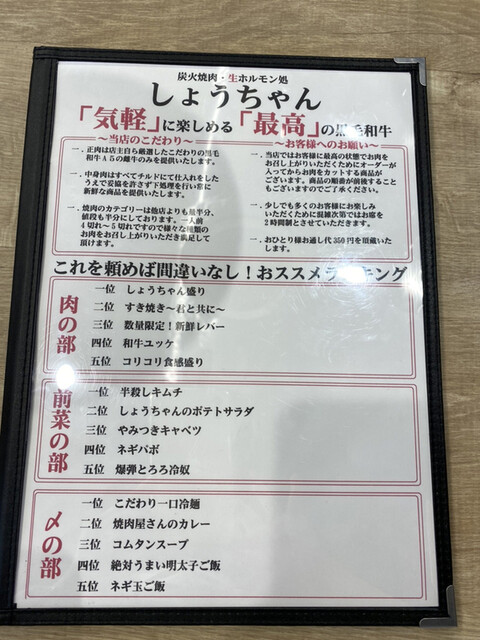 炭火焼肉・生ホルモン処
しょうちゃん
「気軽」に楽しめる「最高」の黒毛和牛
～当店のこだわり～
一．正肉は店主自ら厳選したこだわりの黒毛
和牛A5の雌牛のみを提供いたします。
一．中身肉はすべてチルドにて仕入れをした
うえで妥協を許さず下処理を行い常に
新鮮な商品を提供いたします。
一．焼肉のカテゴリーは他店よりも量半分、
値段も半分にしております。一人前
4切れ～5切れですので様々な種類の
お肉をお召し上がりいただき満足して
頂けます。
～お客様へのお願い～
一．当店ではお客様に最高の状態でお肉を
お召し上がりいただくためにオーダーが
入ってからお肉をカットする商品が
ございます。商品の順番が前後すること
もございますのでご了承ください。
一．少しでも多くのお客様にお楽しみ
いただくために混雑次第ではお席を
2時間制とさせていただきます。
一．おひとり様お通し代350円を頂戴いた
します。
これを頼めば間違いなし！おススメランキング
肉の部
一位 しょうちゃん盛り
二位 すき焼き～君と共に～
三位 数量限定！新鮮レバー
四位 和牛ユッケ
五位 コリコリ食感盛り
前菜の部
一位 半殺しキムチ
二位 しょうちゃんのポテトサラダ
三位 やみつきキャベツ
四位 ネギバボ
五位 爆弾とろろ冷奴
〆の部
一位 こだわり一口冷麺
二位 焼肉屋さんのカレー
三位 コムタンスープ
四位 絶対うまい明太子ご飯
五位 ネギ玉ご飯